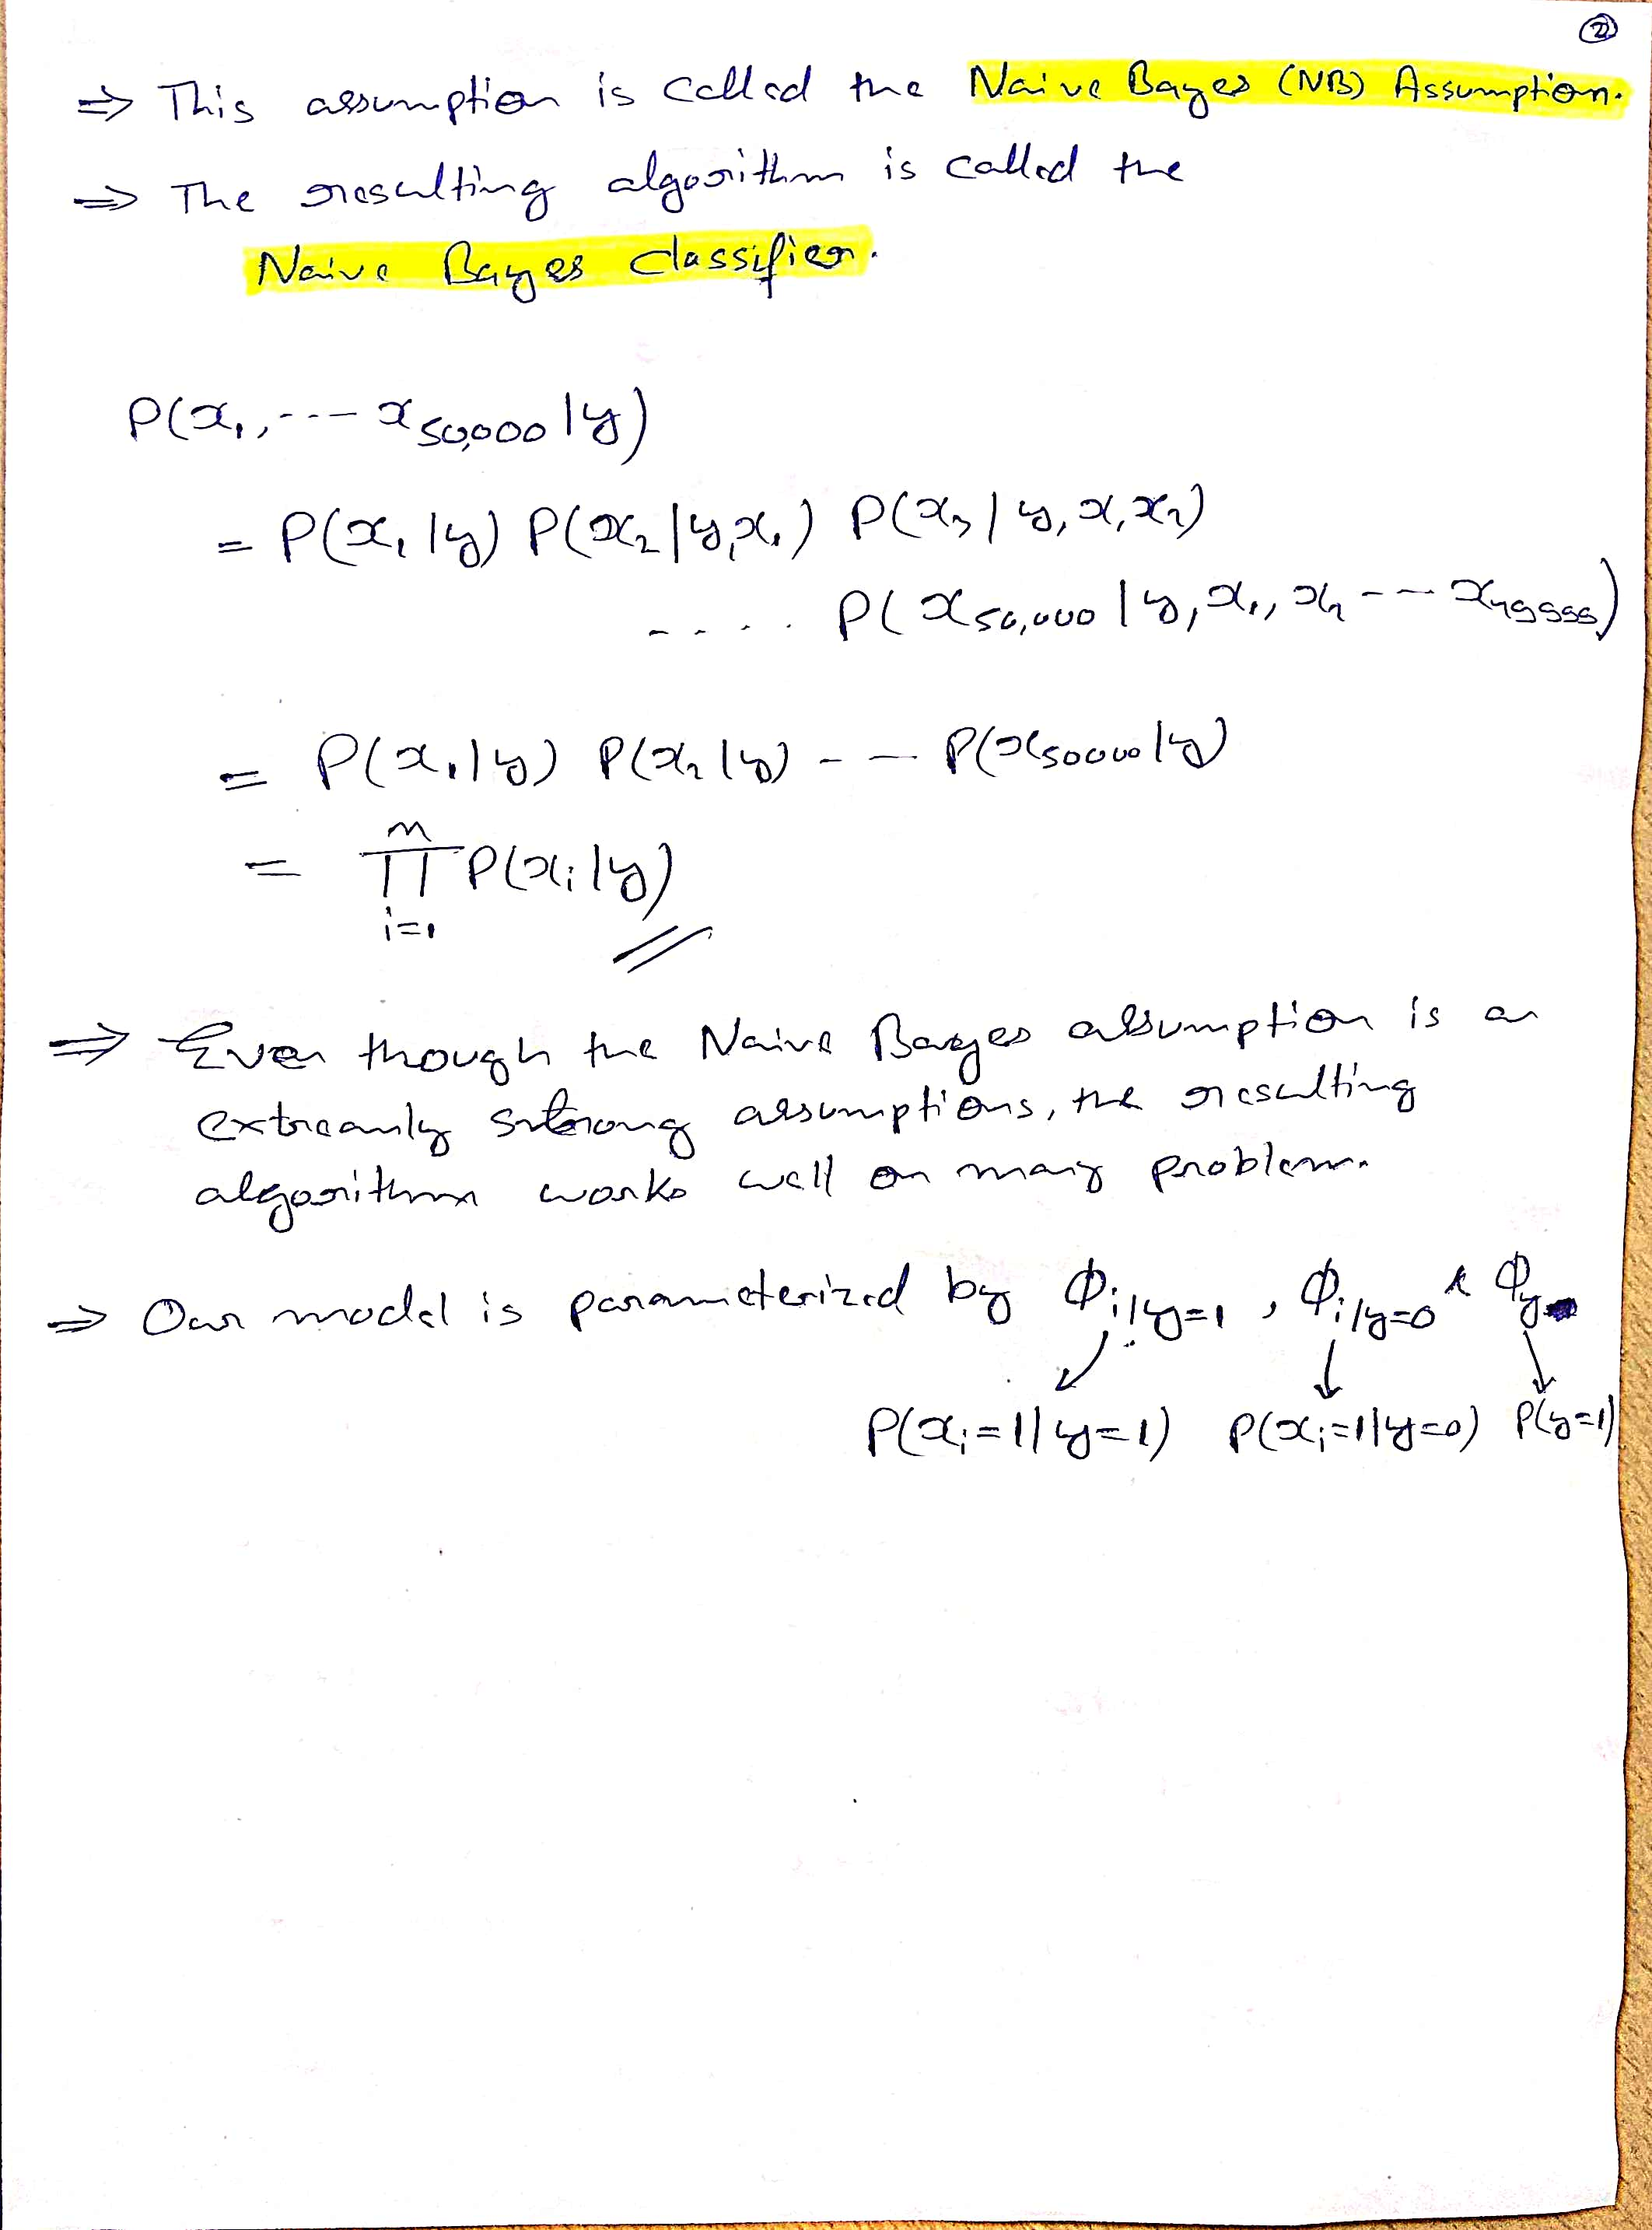 ②
⇒ This assumption is called the Naive Bayes (NB) Assumption.
⇒ The resulting algorithm is called the
Naive Bayes classifier.
P(x₁, --- x₅₀,₀₀₀ | y)
= P(x₁ | y) P(x₂ | y, x₁) P(x₃ | y, x₁ x₂)
.... P(x₅₀,₀₀₀ | y, x₁, x₂ --- x₄₉₉₉₉)
= P(x₁ | y) P(x₂ | y) --- P(x₅₀₀₀₀ | y)
n
= ∏ P(xᵢ | y)
i=1
⇒ Even though the Naive Bayes assumption is a
extreamly strong assumptions, the resulting
algorithm works well on many problem.
⇒ Our model is parameterized by Φi|y=1, Φi|y=0 & Φy
P(xᵢ=1 | y=1) P(xᵢ=1 | y=0) P(y=1)